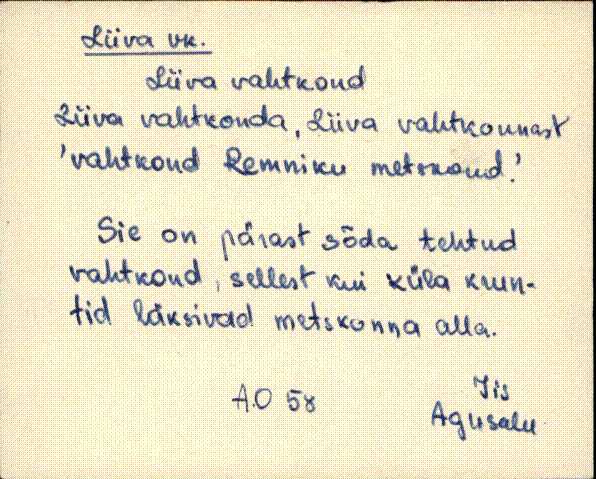 Liiva vk.
Liiva vahtkond
Liiva vahtkonda, Liiva vahtkonnast
'vahtkond Remniku metskond.'
Sie on pärast sõda tehtud
vahtkond, sellest kui küla krun-
tid läksivad metskonna alla.
A.O 58
Iis
Agusalu